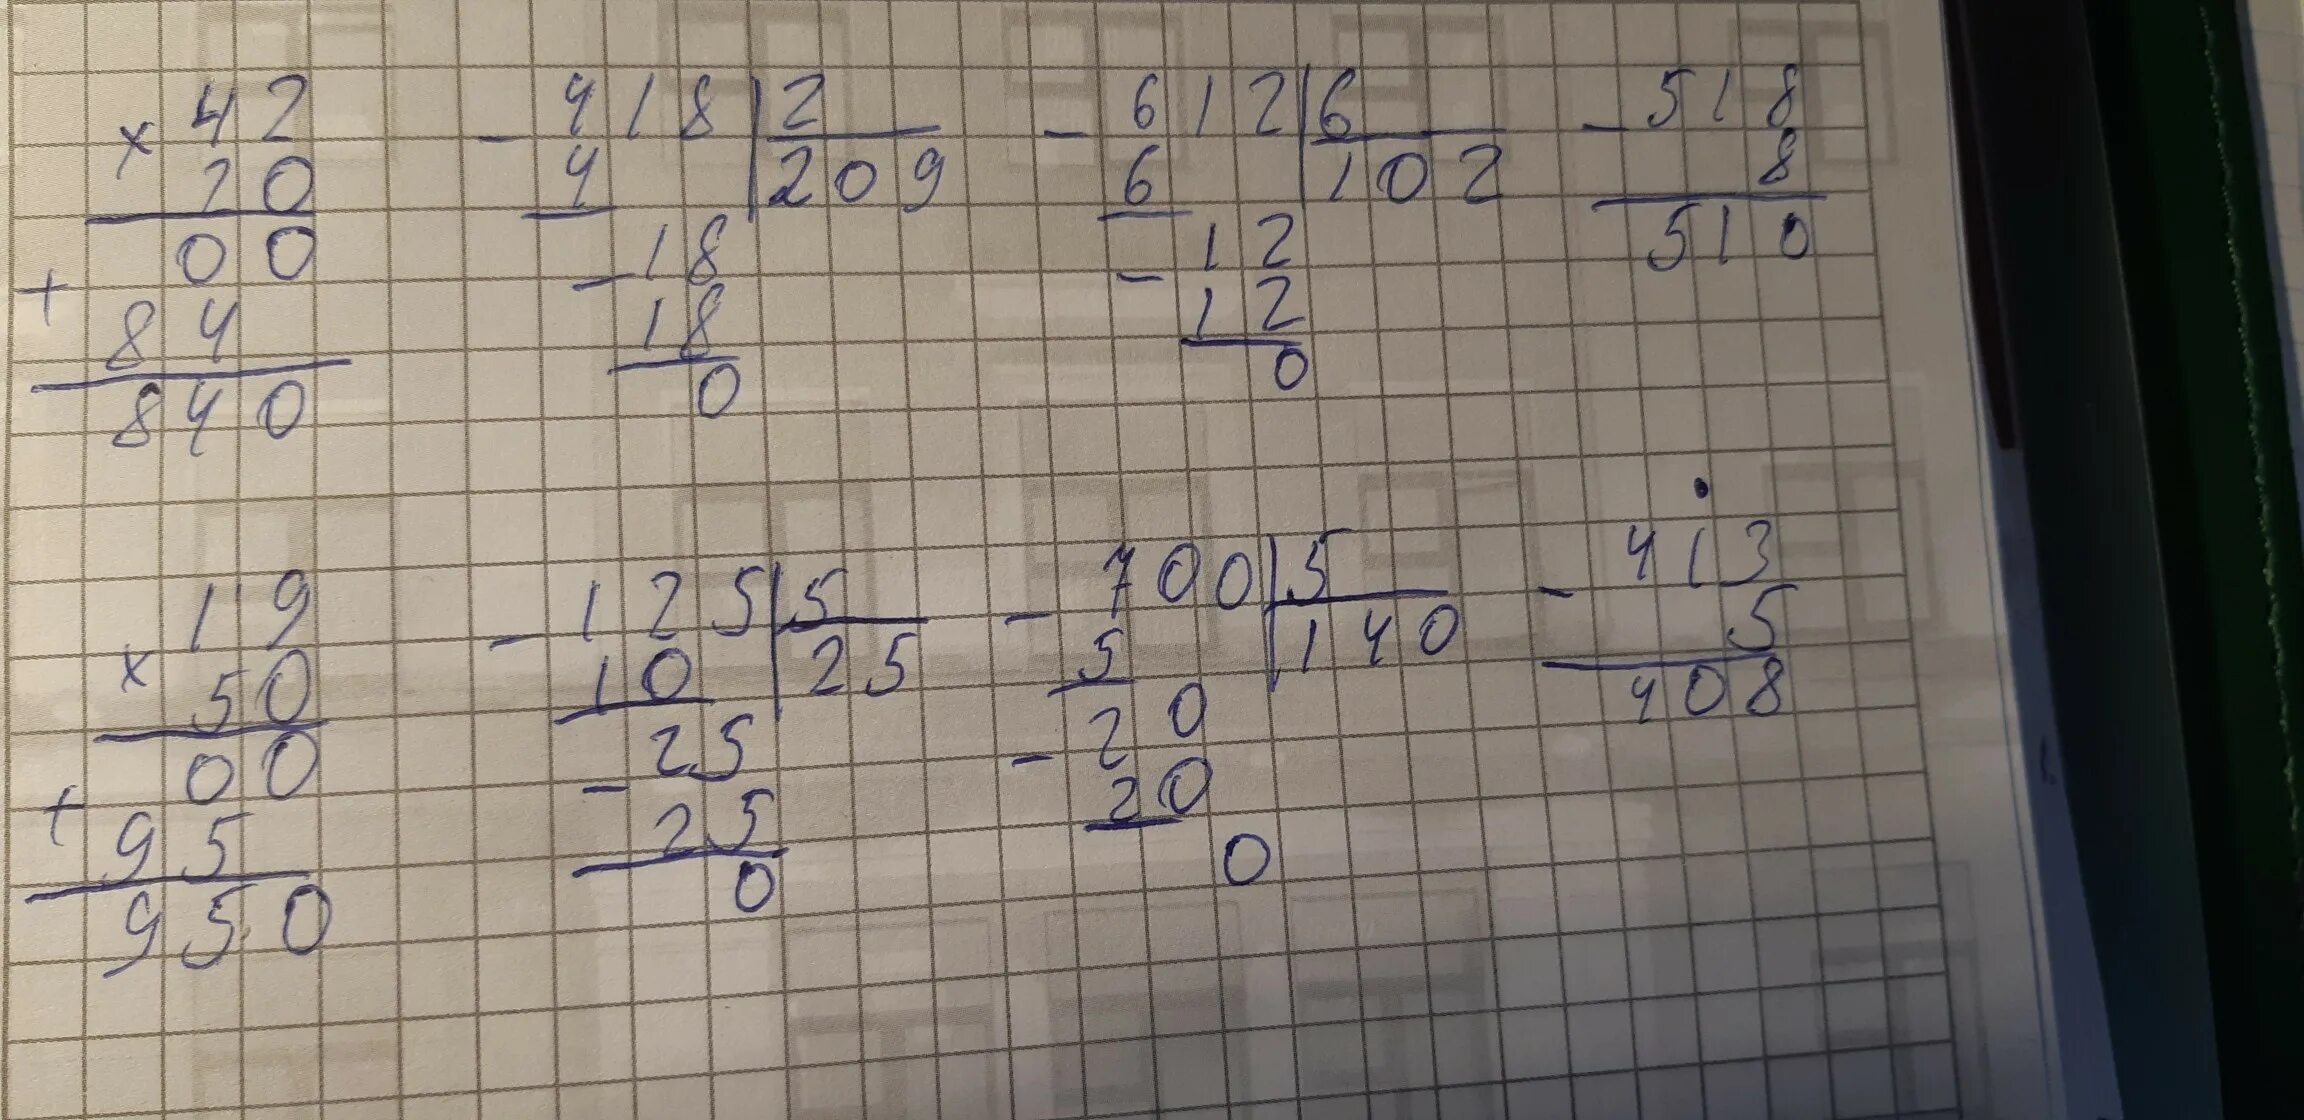 × 42
20
00
+
84
840
- 418 | 2
4 | 209
- 18
18
0
- 612 | 6
6 | 102
- 12
12
0
- 518
8
510
× 19
50
00
+
95
950
- 125 | 5
10 | 25
- 25
25
0
- 700 | 5
5 | 140
- 20
20
0
- 413
5
408